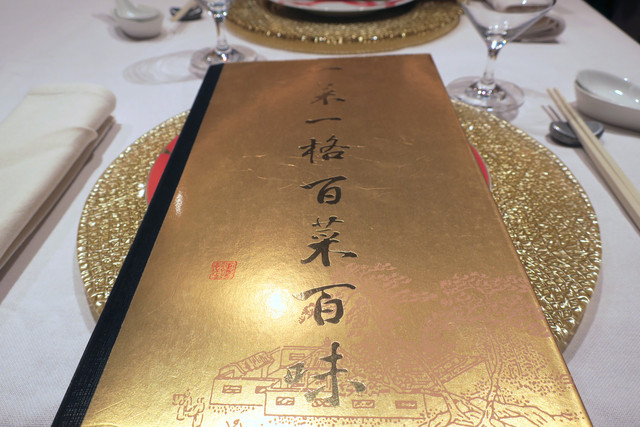 一菜一格百菜百味